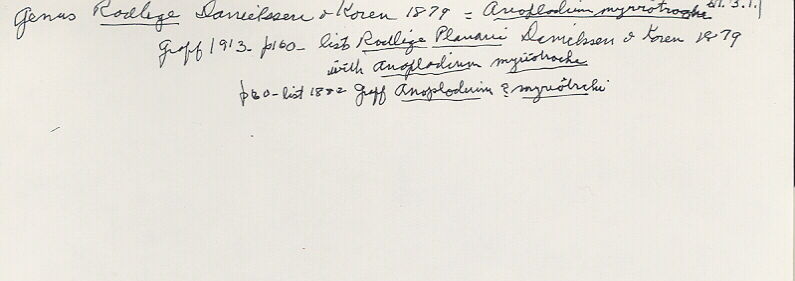 Genus Rodlige Danielssen & Koren 1879 = Anoplodium myriotrochi
Graff 1913 - p160 - list Rodlige Planarii Danielssen & Koren 1879
with Anoplodium myriotrochi
p30 - list 1882 Graff Anoplodium & myriotrochi